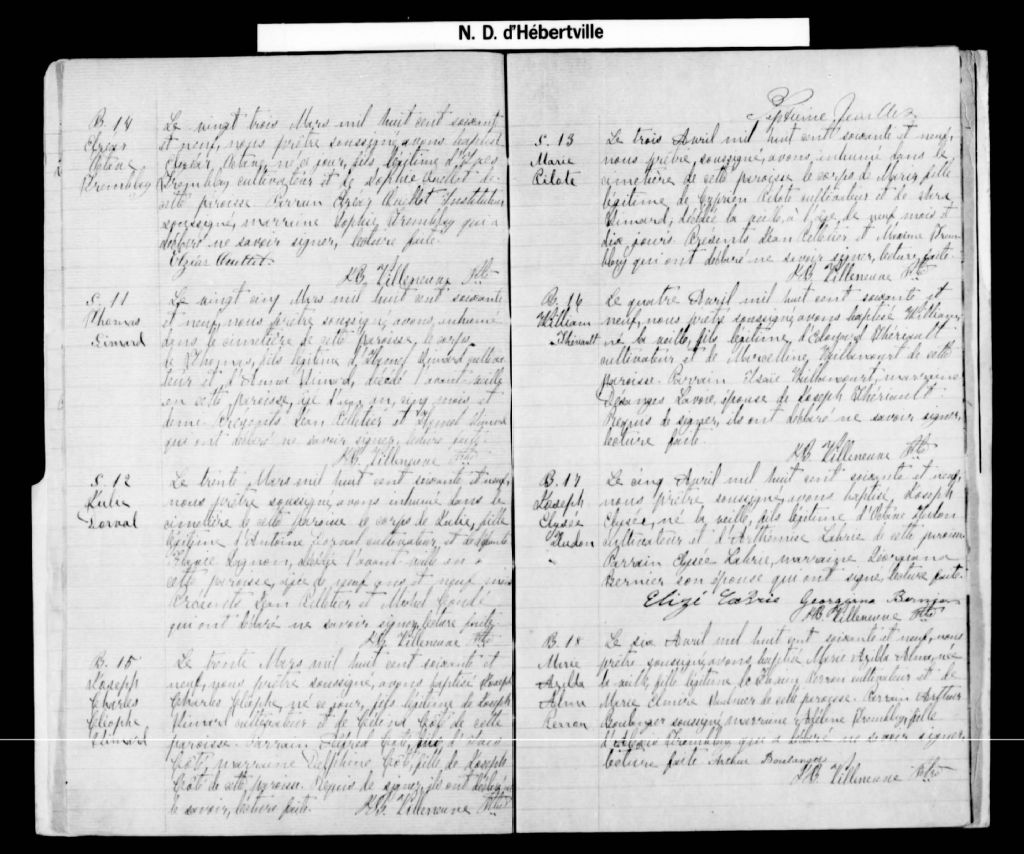 N. D. d'Hébertville
B. 14
Elzéar
Octave
Tremblay
Le vingt trois Mars mil huit cent soixante
et neuf, nous prêtre soussigné avons baptisé
Elzéar, Octave, né ce jour, fils légitime d'
Tremblay cultivateur et de Sophie Ouellet de
cette paroisse. Parrain Elzéar Ouellet Instituteur
soussigné, marraine Sophie Tremblay qui a
déclaré ne savoir signer, lecture faite.
Elzéar Ouellet
H.B. Villeneuve Ptre
S. 11
Thomas
Simard
Le vingt cinq Mars mil huit cent soixante
et neuf, nous prêtre soussigné avons inhumé
dans le cimetière de cette paroisse, le corps
de Thomas, fils légitime d' Simard cultiva-
teur et d' Simard, décédé l'avant-veille
en cette paroisse, âgé d'un an, cinq mois et
demi. Présents Jean Pelletier et Simard
qui ont déclaré ne savoir signer, lecture faite.
H.B. Villeneuve Ptre
S. 12
Julie
Dorval
Le trente Mars mil huit cent soixante et neuf,
nous prêtre soussigné avons inhumé dans le
cimetière de cette paroisse le corps de Julie, fille
légitime d'Antoine Dorval cultivateur, et de
Gagnon, décédée l'avant-veille en
cette paroisse, âgée de neuf ans et neuf mois
Présents Jean Pelletier et Michel
qui ont déclaré ne savoir signer, lecture faite.
H.B. Villeneuve Ptre
B. 15
Joseph
Charles
Cléophe
Simard
Le trente Mars mil huit cent soixante et
neuf, nous prêtre soussigné, avons baptisé Joseph
Charles Cléophe, né ce jour, fils légitime de Joseph
Simard cultivateur et de Côté de cette
paroisse. Parrain Alfred Côté, fils d'
Côté, marraine Delphine Côté, fille de Joseph
Côté de cette paroisse. Requis de signer, ils ont déclaré ne
le savoir, lecture faite. H.B. Villeneuve Ptre
Septième Feuillet
S. 13
Marie
Pilote
Le trois Avril mil huit cent soixante et neuf,
nous prêtre, soussigné, avons, inhumé dans le
cimetière de cette paroisse le corps de Marie, fille
légitime de Cyprien Pilote cultivateur et de
Simard, décédée la veille, à l'âge de neuf mois et
dix jours. Présents Jean Pelletier et Maxime Trem
blay qui ont déclaré ne savoir signer, lecture faite.
H.B. Villeneuve Ptre
B. 16
William
Thériault
Le quatre Avril mil huit cent soixante et
neuf, nous prêtre soussigné avons baptisé William,
né la veille, fils légitime d'Edouard Thériault
cultivateur et de Marcelline de cette
paroisse. Parrain Isaïe marraine
Desanges Lavoie, épouse de Joseph Thériault.
Requis de signer, ils ont déclaré ne savoir signer,
lecture faite.
H.B. Villeneuve Ptre
B. 17
Joseph
Elysée
Hudon
Le cinq Avril mil huit cent soixante et neuf,
nous prêtre soussigné, avons baptisé, Joseph
Elysée, né la veille, fils légitime d'Octave Hudon
cultivateur et d'Arthémise Labrie de cette paroisse
Parrain Elysée Labrie, marraine Georgiana
Bernier son épouse qui ont signé, lecture faite.
Elizé Labrie Georgianna Bernier
H.B. Villeneuve Ptre
B. 18
Marie
Azilda
Alma
Perron
Le six Avril mil huit cent soixante et neuf, nous
prêtre soussigné, avons baptisé Marie Azilda Alma, née
la veille, fille légitime de Perron cultivateur et de
Marie Elmire de cette paroisse. Parrain Arthur
Boulanger soussigné, marraine Tremblay, fille
d' Tremblay qui a déclaré ne savoir signer,
lecture faite. Arthur Boulanger
H.B. Villeneuve Ptre